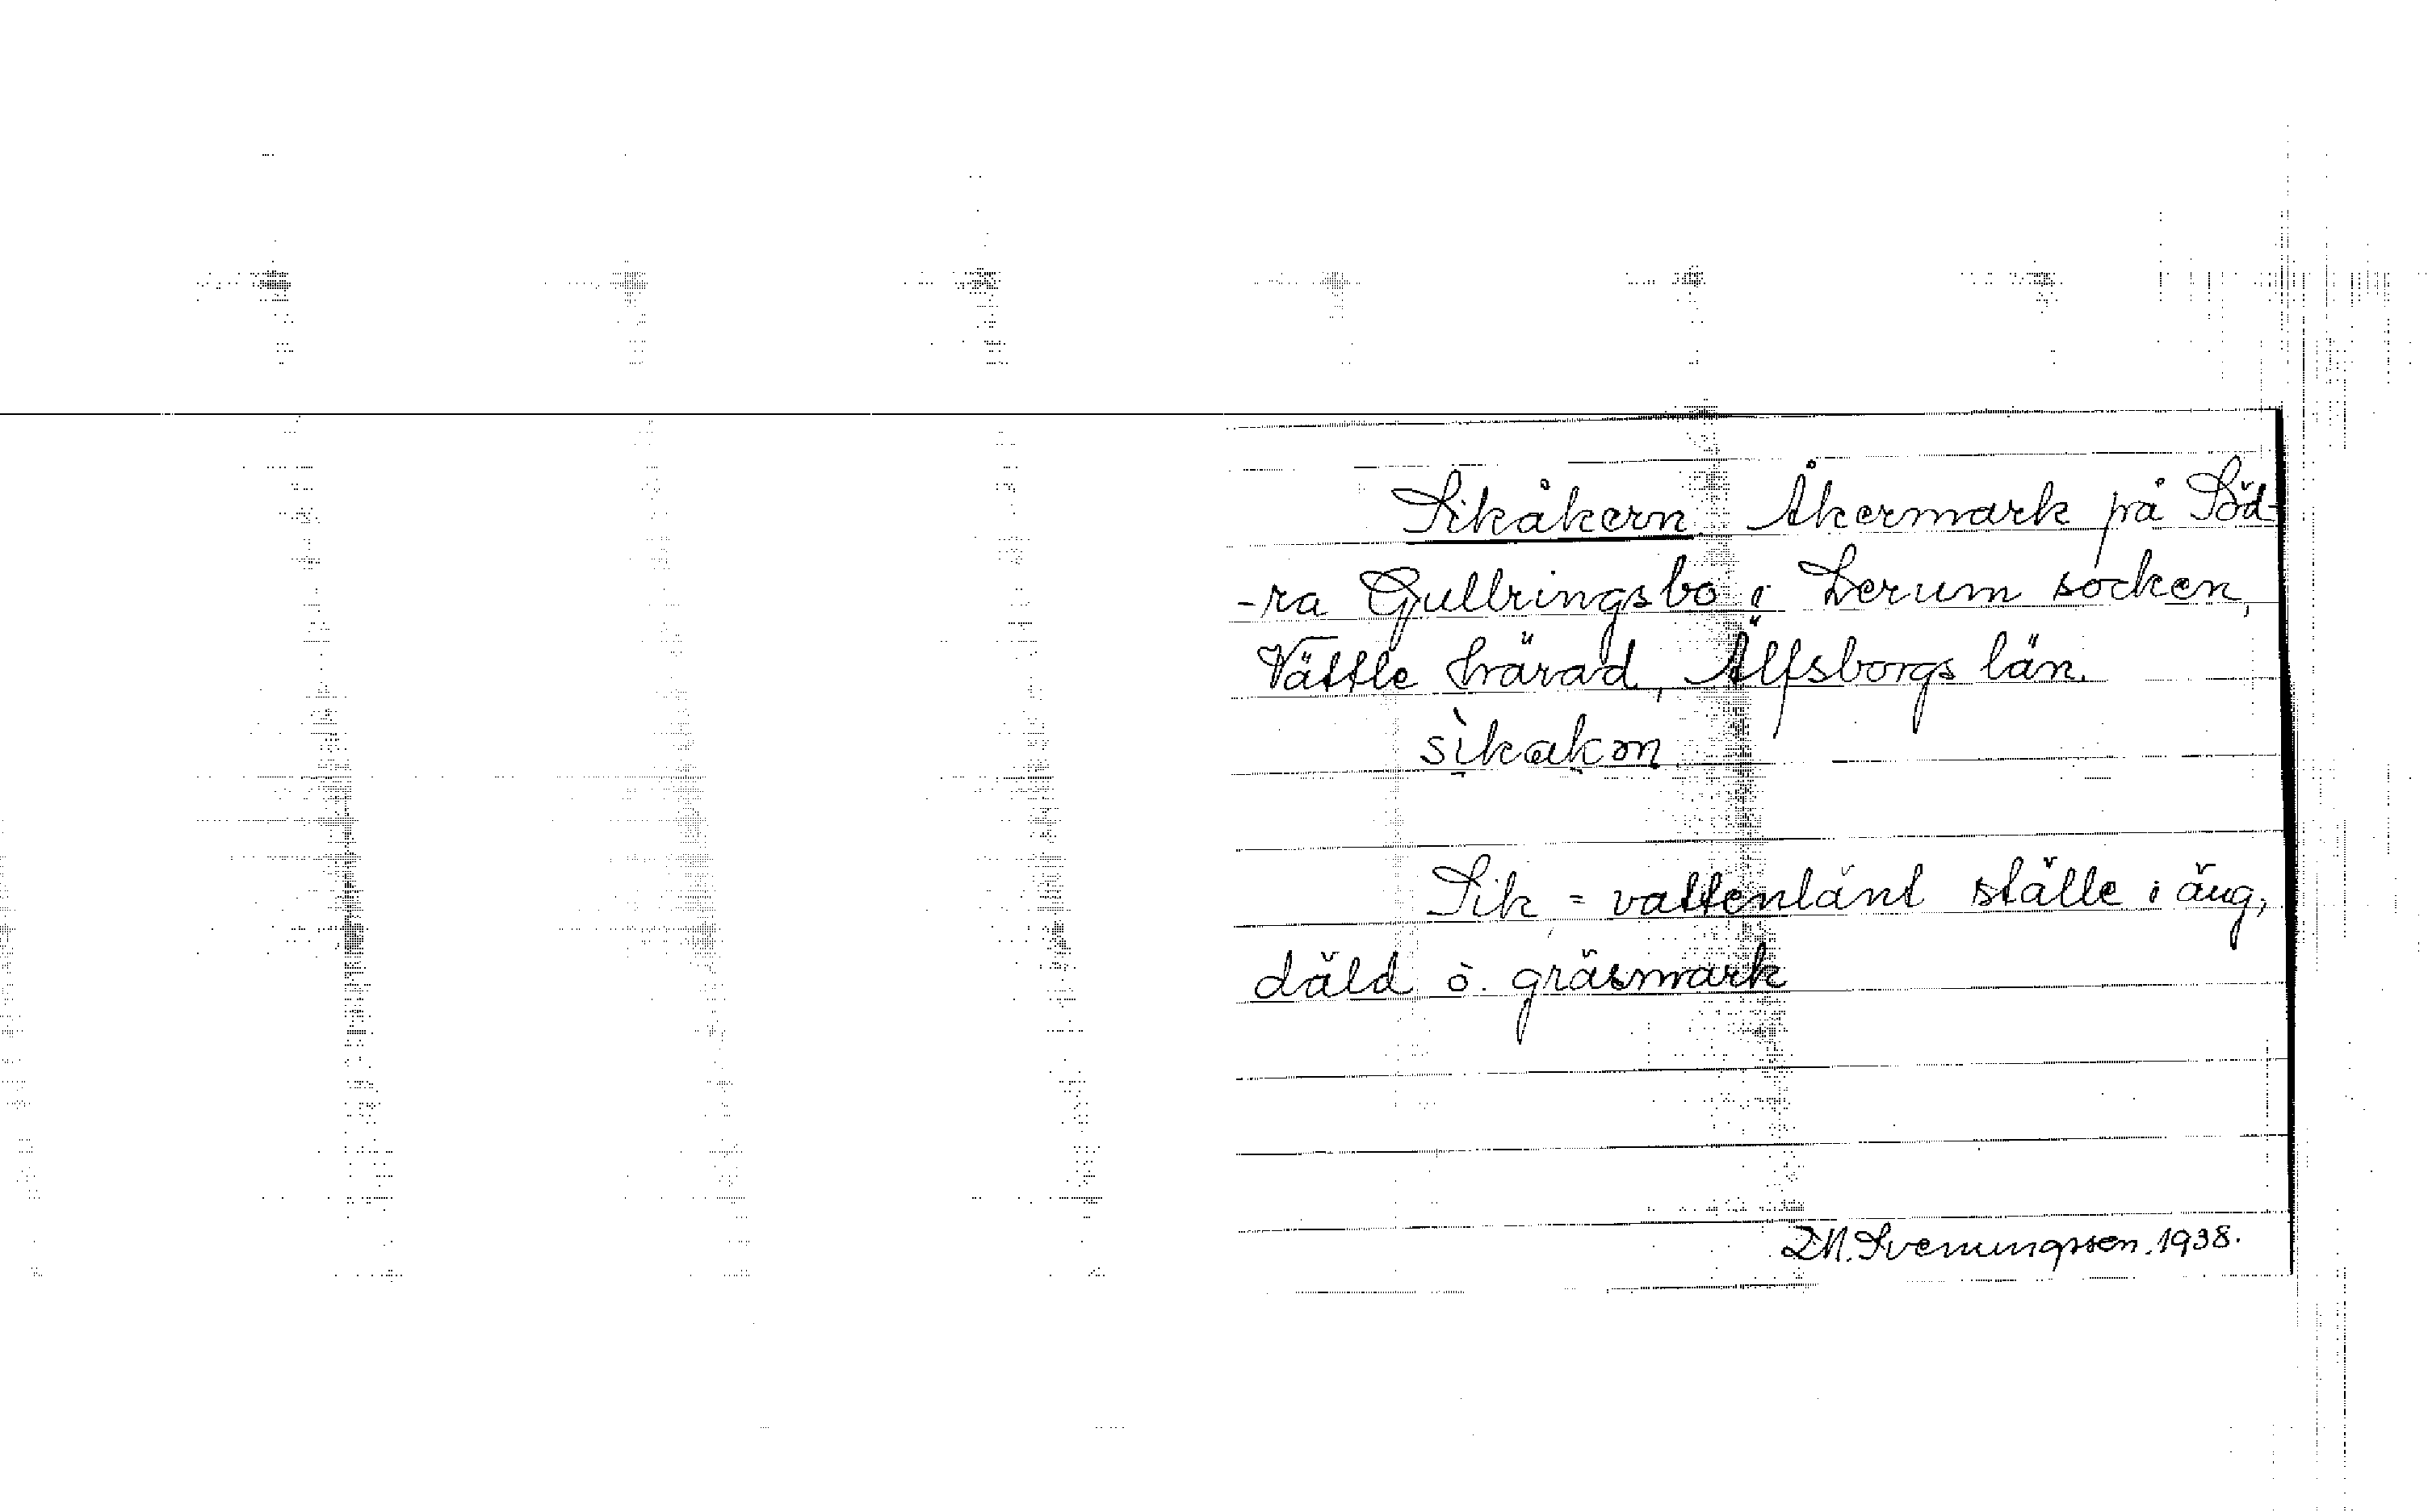 Sikåkern Åkermark på Söd-
-ra Gullringsbo i Lerum socken,
Vättle härad, Älfsborgs län.
sikakən
Sik = vattenlänt ställe i äng,
däld o. gräsmark
Sveningsson. 1938.